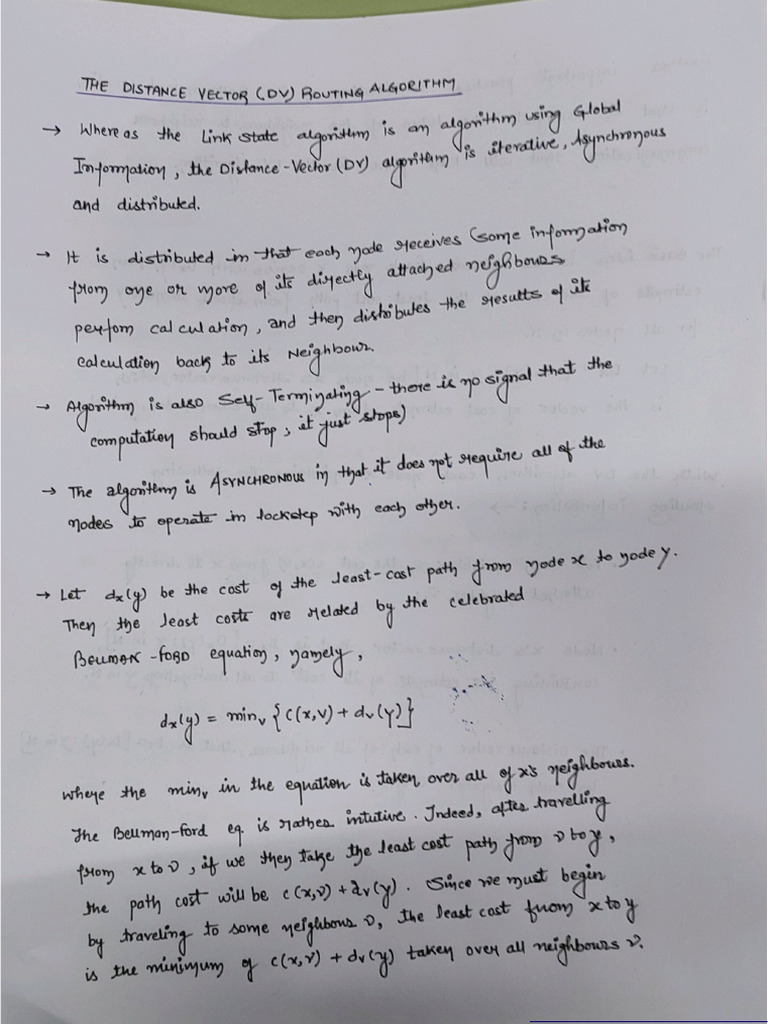 THE DISTANCE VECTOR (DV) ROUTING ALGORITHM
→ Where as the Link State algorithm is an algorithm using Global
Information, the Distance-Vector (DV) algorithm is iterative, Asynchronous
and distributed.
→ It is distributed in that each node receives (some information
from one or more of its directly attached neighbours
perform calculation, and then distributes the results of its
calculation back to its Neighbour.
→ Algorithm is also Self-Terminating - there is no signal that the
computation should stop, it just stops)
→ The algorithm is ASYNCHRONOUS in that it does not require all of the
nodes to operate in lockstep with each other.
→ Let dx(y) be the cost of the least-cost path from node x to node y.
Then the least costs are related by the celebrated
BELLMAN-FORD equation, namely,
dx(y) = minv {c(x,v) + dv(y)}
where the minv in the equation is taken over all of x's neighbours.
The Bellman-ford eq. is rather intutive. Indeed, after travelling
from x to v, if we then take the least cost path from v to y,
the path cost will be c(x,v) + dv(y). Since we must begin
by traveling to some neighbour v, the least cost from x to y
is the minimum of c(x,v) + dv(y) taken over all neighbours v.